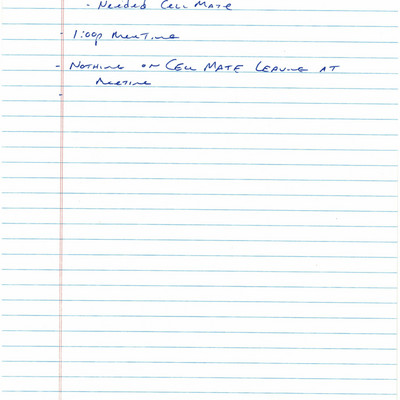 - Needed Cell Mate
- 1:00p Meeting
- Nothing on Cell Mate Leaving at
Meeting
-